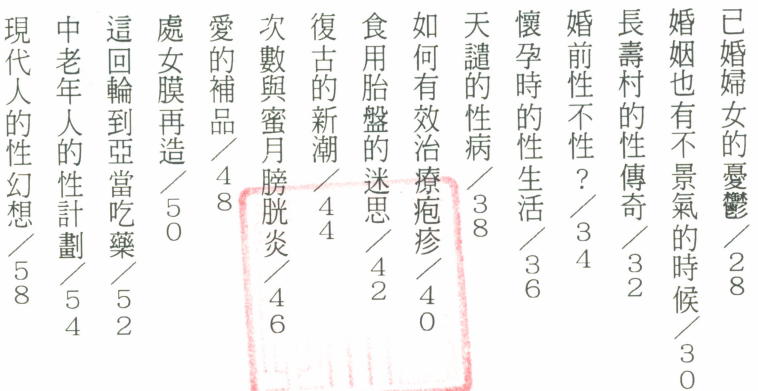 已婚婦女的憂鬱／28
婚姻也有不景氣的時候／30
長壽村的性傳奇／32
婚前性不性？／34
懷孕時的性生活／36
天譴的性病／38
如何有效治療疱疹／40
食用胎盤的迷思／42
復古的新潮／44
次數與蜜月膀胱炎／46
愛的補品／48
處女膜再造／50
這回輪到亞當吃藥／52
中老年人的性計劃／54
現代人的性幻想／58